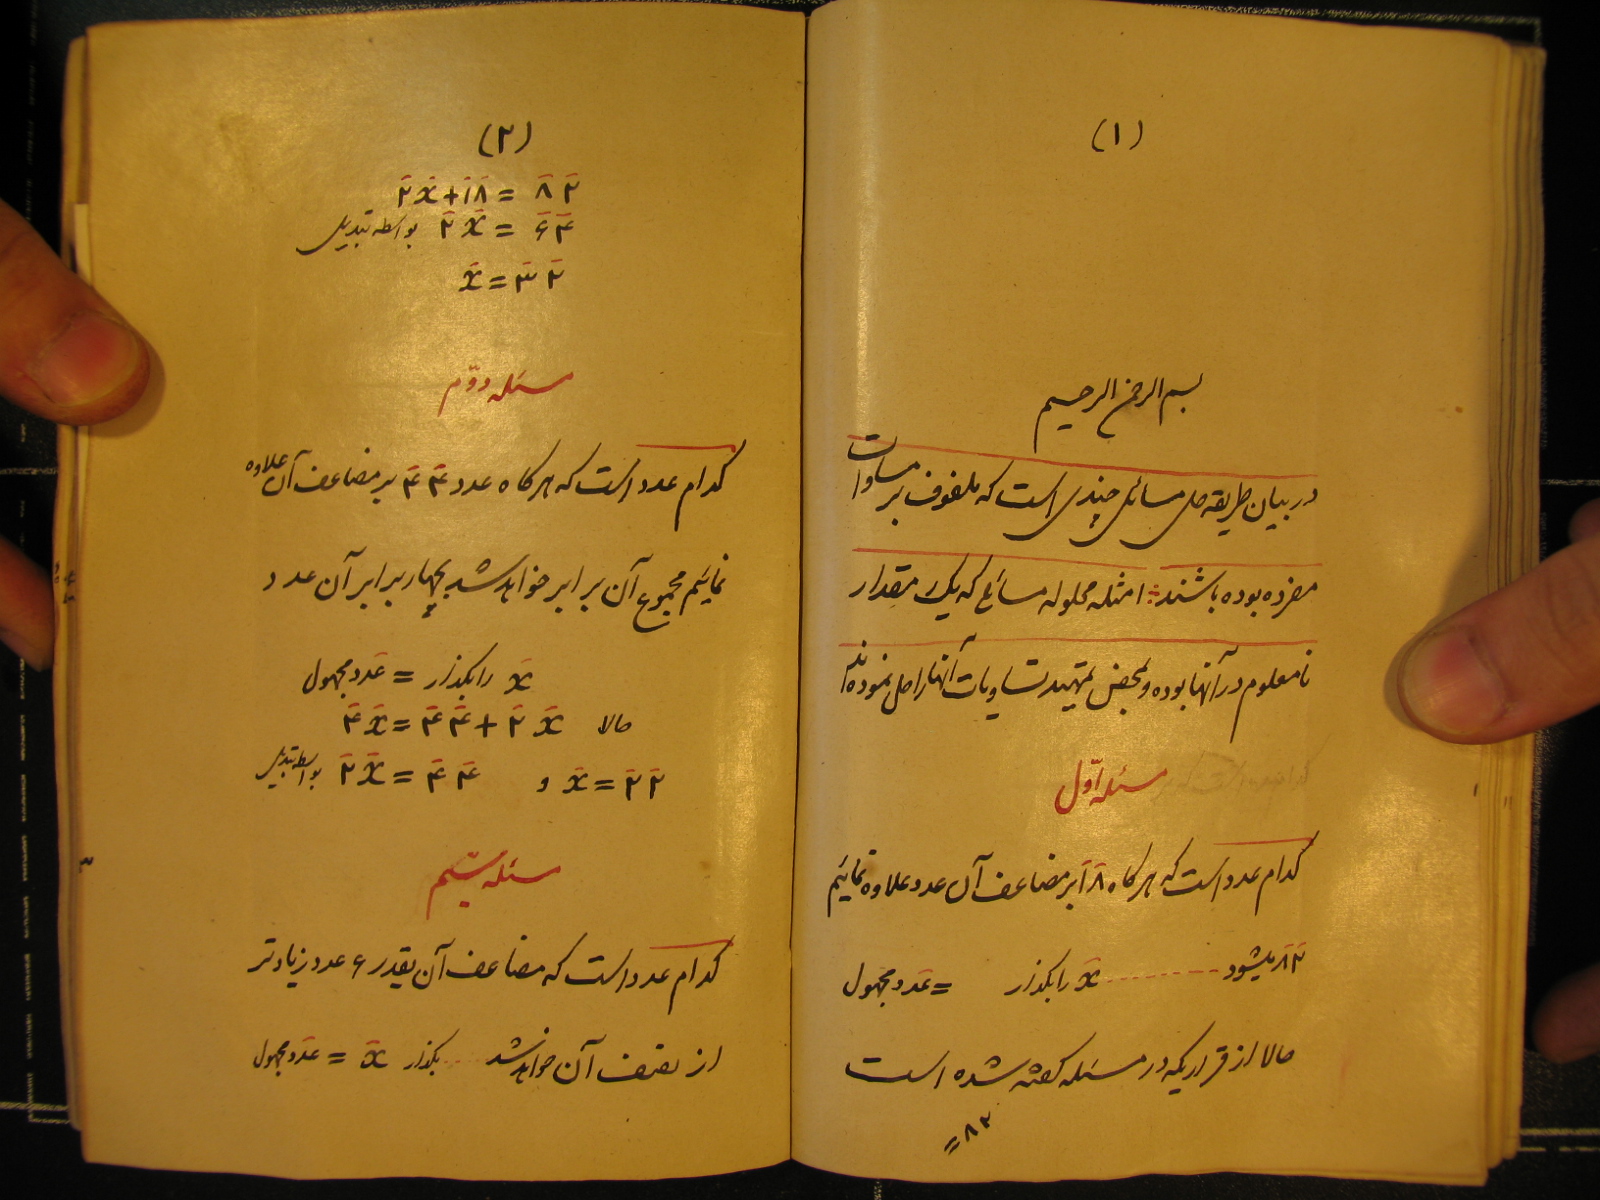 (۱)
بسم الرحمن الرحیم
در بیان طریقه حل مسائل چندی است که ملفوف بر مساوات
مفرده بوده باشند امثله محلوله مسائلی که یک مقدار
نامعلوم در آنها بوده و بمحض تمهید تساویات آنها را حل نموده اند
مسئله اوّل
کدام عدد است که هر کاه ۱۸ بر مضاعف آن عدد علاوه نمائیم
۸۲ میشود x را بکذار = عدد مجهول
حالا از قراریکه در مسئله کفته شده است
=۸۲
(۲)
۲x+۱۸ = ۸۲
۲x = ۶۴ بواسطه تبدیل
x = ۳۲
مسئله دوّم
کدام عدد است که هر کاه عدد ۴۴ بر مضاعف آن علاوه
نمائیم مجموع آن برابر خواهد شد بچهار برابر آن عدد
x را بکذار = عدد مجهول
حالا ۴x = ۴۴ + ۲x
بواسطه تبدیل ۲x = ۴۴ و x = ۲۲
مسئله سیّم
کدام عدد است که مضاعف آن بقدر ۶ عدد زیادتر
از نصف آن خواهد شد بکذار x = عدد مجهول